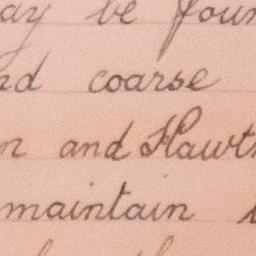 ay be foun
nd coarse
n and Hawt
maintain